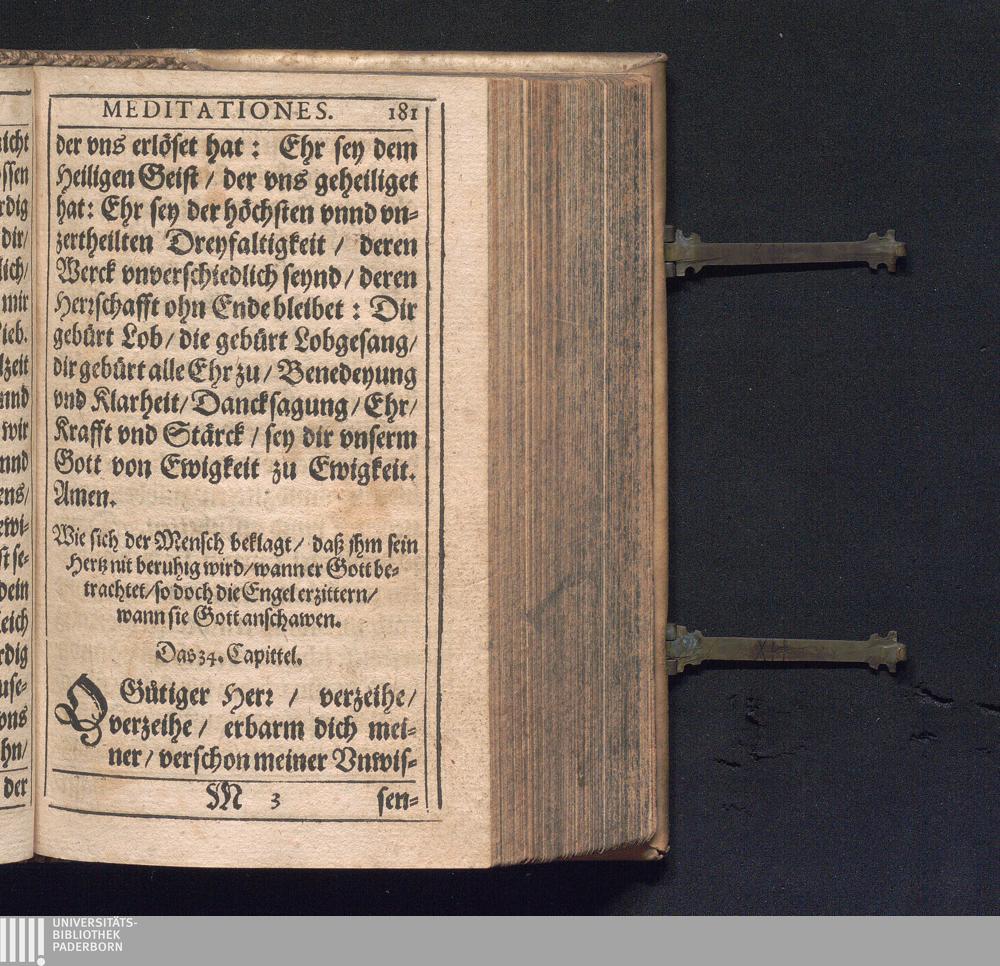 MEDITATIONES. 181
der vns erlöset hat : Ehr sey dem
Heiligen Geist / der vns geheiliget
hat: Ehr sey der höchsten vnnd vn-
zertheilten Dreyfaltigkeit / deren
Werck vnverschiedlich seynd / deren
Herrschafft ohn Ende bleibet : Dir
gebürt Lob / die gebürt Lobgesang/
dir gebürt alle Ehr zu / Benedeyung
vnd Klarheit/ Dancksagung / Ehr/
Krafft vnd Stärck / sey dir vnserm
Gott von Ewigkeit zu Ewigkeit.
Amen.
Wie sich der Mensch beklagt / daß jhm sein
Hertz nit beruhig wird/ wann er Gott be-
trachtet/ so doch die Engel erzittern/
wann sie Gott anschawen.
Das 34. Capittel.
O Gütiger Herr / verzeihe/
verzeihe / erbarm dich mei-
ner / verschon meiner Vnwis-
M 3 sen-
icht
ssen
rdig
dir/
lich/
mir
ieb.
lzeit
nnd
wir
nnd
ens/
ewi-
st se-
dein
leich
rdig
nse-
vns
hn/
der
UNIVERSITÄTS-
BIBLIOTHEK
PADERBORN